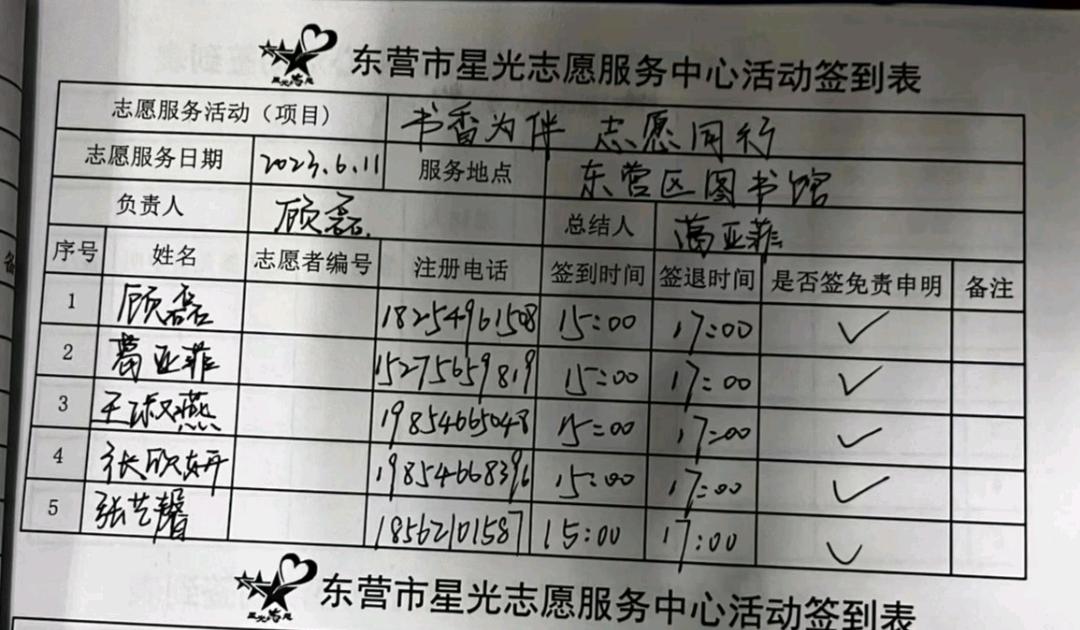 东营市星光志愿服务中心活动签到表
志愿服务活动（项目） 书香为伴 志愿同行
志愿服务日期 2023.6.11 服务地点 东营区图书馆
负责人 顾磊 总结人 葛亚菲
序号 姓名 志愿者编号 注册电话 签到时间 签退时间 是否签免责申明 备注
1 顾磊 18254961508 15:00 17:00 ✓
2 葛亚菲 15275659819 15:00 17:00 ✓
3 王淑燕 19854665048 15:00 17:00 ✓
4 张欣妍 19854668396 15:00 17:00 ✓
5 张艺馨 18562101587 15:00 17:00 ✓
东营市星光志愿服务中心活动签到表